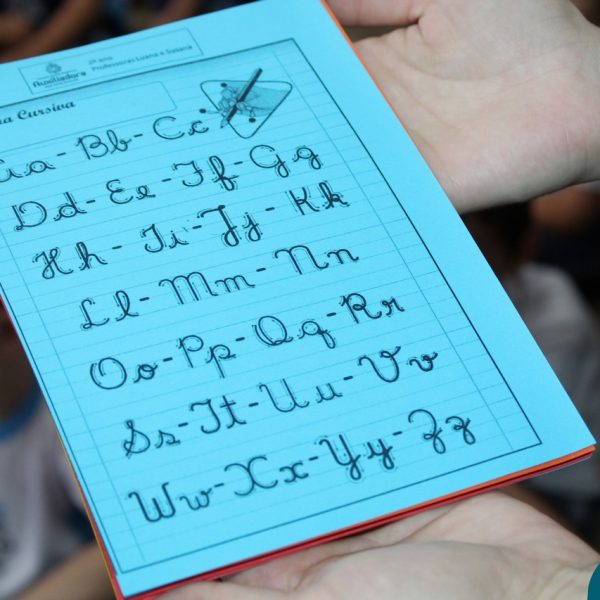 Auxiliadora
2º ano
Professoras Luana e Susana
Cursiva
Aa - Bb - Cc
Dd - Ee - Ff - Gg
Hh - Ii - Jj - Kk
Ll - Mm - Nn
Oo - Pp - Qq - Rr
Ss - Tt - Uu - Vv
Ww - Xx - Yy - Zz